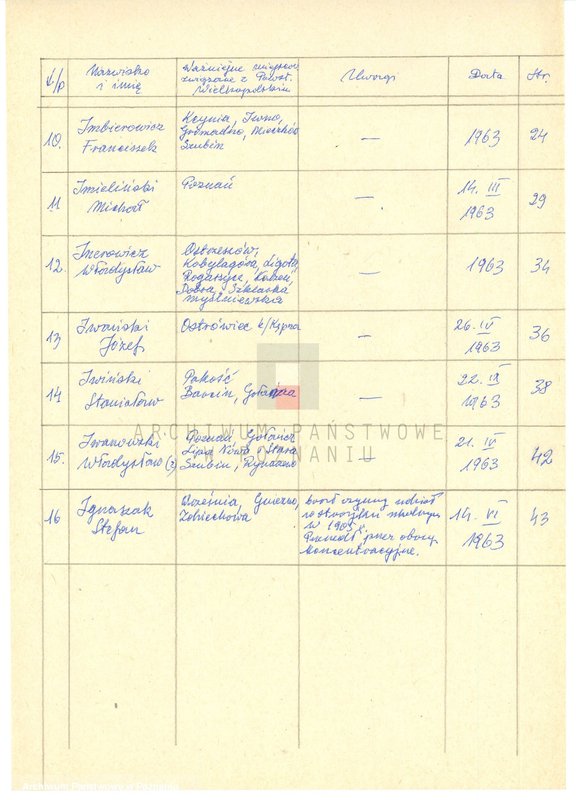 L/p Nazwisko i imię Ważniejsze miejscow. związane z Powst. Wielkopolskim Uwagi Data Str.
10. Imbierowicz Franciszek Kcynia, Iwno, Gromadno, Mieczków Szubin — 1963 24
11 Imieliński Michał Poznań — 14. III 1963 29
12. Inerowicz Władysław Ostrzeszów, Kobylagóra, Ligota, Rogaszyce, Dobra, Szklarka myślniewska — 1963 34
13 Iwański Józef Ostrówiec k/ — 26. IV 1963 36
14 Iwiński Stanisław Pakość Barcin, — 22. IX 1963 38
15. Iwanowski Władysław Gołańcz Lipa Nowa i Stara Szubin, — 21. IV 1963 42
16 Ignaszak Stefan Września, Gniezno, Zdziechowa brał czynny udział w strajku szkolnym w 1905 r. Przeszedł przez obozy koncentracyjne. 14. VI 1963 43
ARCHIWUM PAŃSTWOWE
W POZNANIU
Archiwum Państwowe w Poznaniu